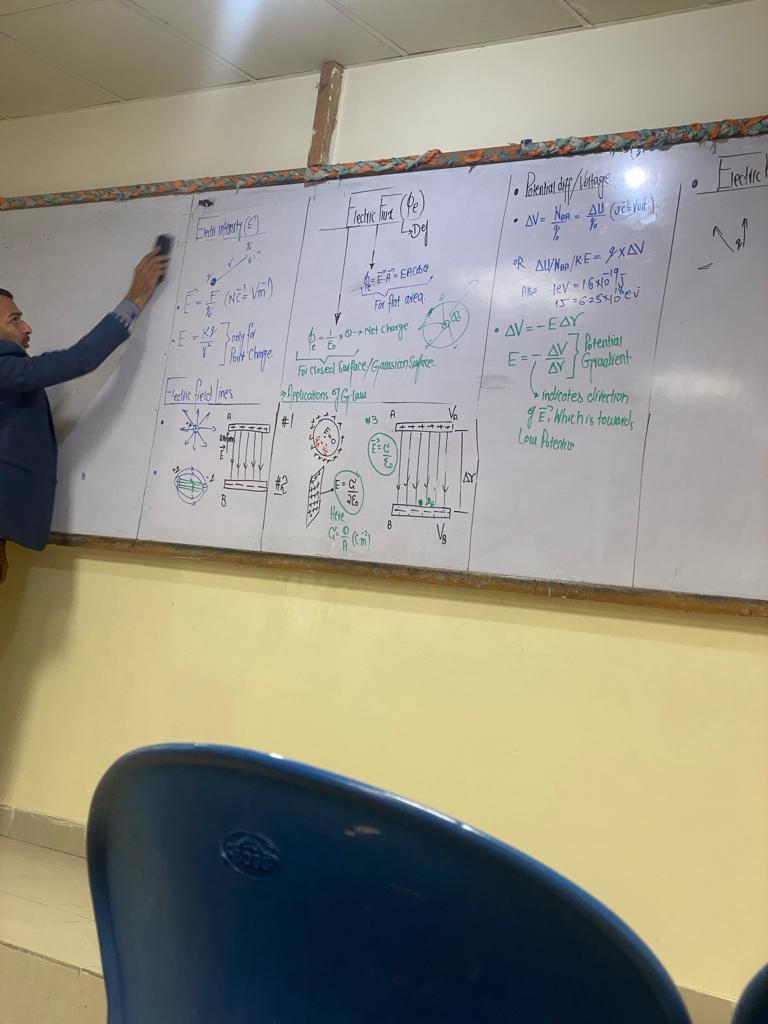 Electric intensity (E⃗)
q
r
q₀
E⃗ = F⃗/q₀ (NC⁻¹ = Vm⁻¹)
E = Kq/r² ] only for Point Charge.
Electric field lines
A
E⃗
B
Electric Flux (ϕe)
→ Def
ϕe = E⃗·A⃗ = EAcosθ
For flat area.
ϕe = 1/ε₀ × Q → Net Charge.
For Closed Surface/Gaussian Surface.
→ Applications of G-law
#1
#2
E = σ/2ε₀
Here
σ = Q/A (Cm⁻²)
#3
E⃗ = σ/ε₀
A
VA
Δr
B
VB
• Potential diff/Voltage
• ΔV = WBA/q₀ = ΔU/q₀ (JC⁻¹ = Volt)
OR ΔU/WBA/K·E = q × ΔV
Also 1eV = 1.6×10⁻¹⁹J
1J = 6.25×10¹⁸ eV
• ΔV = -EΔr
E = -ΔV/Δr ] Potential Gradient.
indicates direction
of E⃗, Which is towards
Low Potential
• Electric